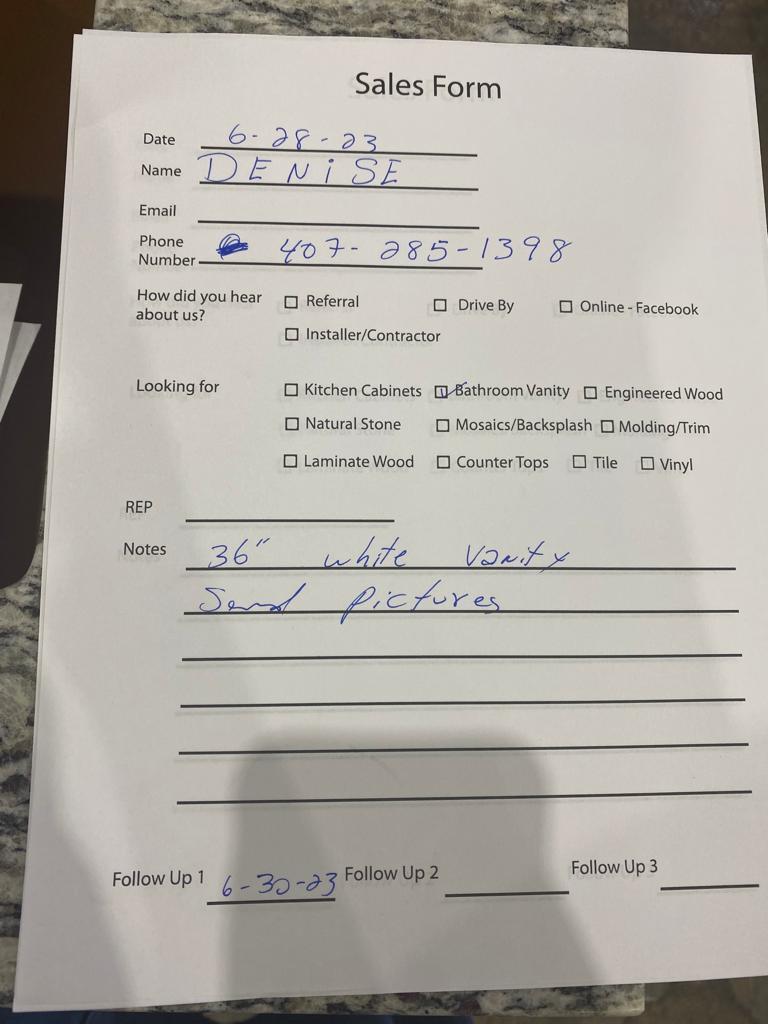 Sales Form
Date 6-28-23
Name DENiSE
Email
Phone
Number 407-285-1398
How did you hear
about us?
☐ Referral ☐ Drive By ☐ Online - Facebook
☐ Installer/Contractor
Looking for ☐ Kitchen Cabinets ☑ Bathroom Vanity ☐ Engineered Wood
☐ Natural Stone ☐ Mosaics/Backsplash ☐ Molding/Trim
☐ Laminate Wood ☐ Counter Tops ☐ Tile ☐ Vinyl
REP
Notes 36" white vanity
Send pictures
Follow Up 1 6-30-23 Follow Up 2 Follow Up 3